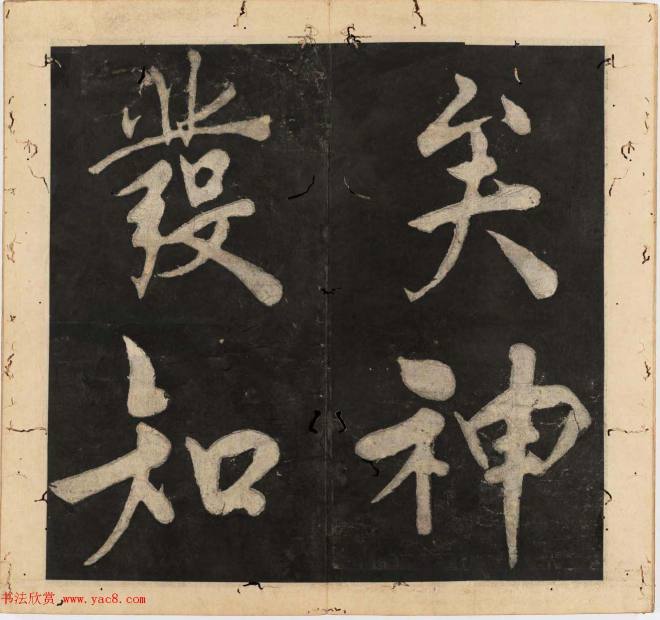 矣神
發知
书法欣赏 www.yac8.com